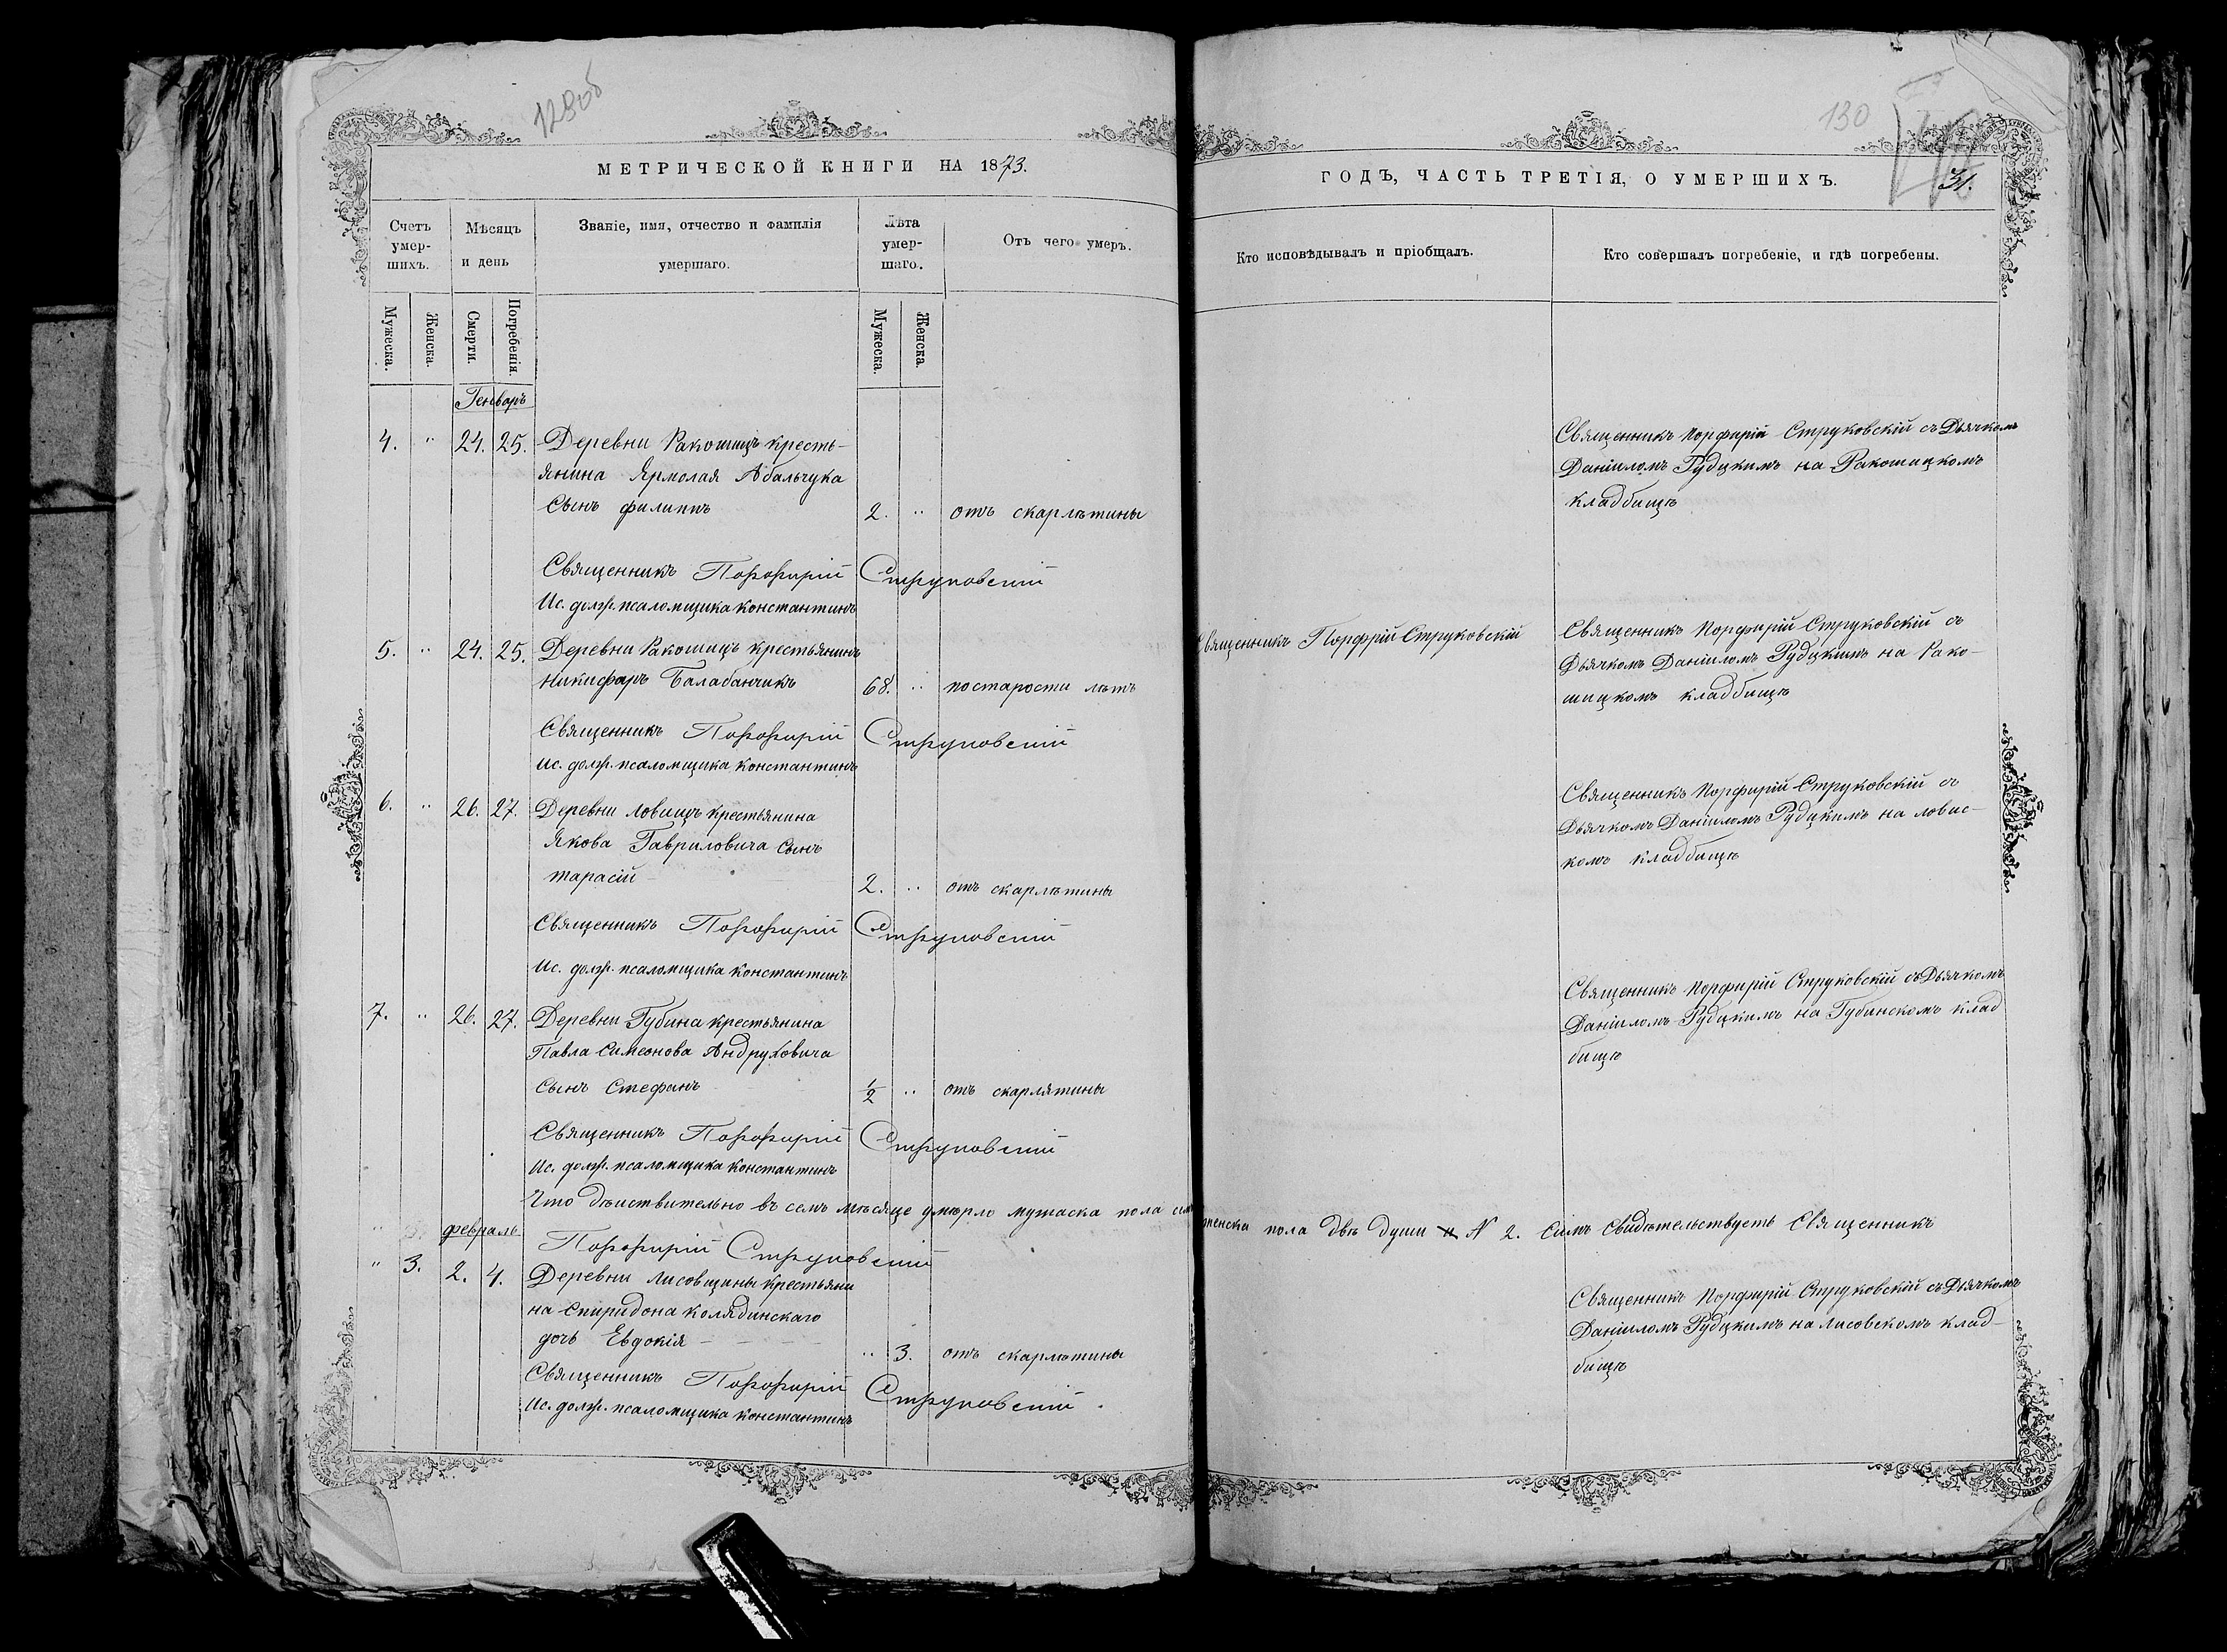 129об
МЕТРИЧЕСКОЙ КНИГИ НА 1873.
Счетъ умер-шихъ.
Мѣсяцъ и день
Званіе, имя, отчество и фамилія умершаго.
Лѣта умер-шаго.
Отъ чего умеръ.
Мужеска.
Женска.
Смерти.
Погребенія.
Мужеска.
Женска
Генваръ
4. " 24. 25. Деревни Ракошицъ кресть-
янина Ярмолая Абальчука
Сынъ филиппъ 2. " отъ скарлѣтины
Священникъ Порфирій Струковскій
Ис. долж. псаломщика константинъ
5. " 24. 25. Деревни Ракошицъ крестьянинъ
никифаръ Балабанчикъ 68. " постарости лѣтъ
Священникъ Порфирій Струковскій
ис. долж. псаломщика константинъ
6. " 26. 27. Деревни Ловицъ крестьянина
Якова Гавриловича сынъ
тарасій 2. " отъ скарлѣтины
Священникъ Порфирій Струковскій
Ис. долж. псаломщика константинъ
7. " 26. 27. Деревни Губина крестьянина
Павла Симеонова Андруховича
сынъ Стефанъ 1/2 " отъ скарлятины
Священникъ Порфирій Струковскій
Ис. долж. псаломщика константинъ
Что дѣиствительно въ семъ мѣсяце умѣрло мужаска пола
февраль
Порфирій Струковскій
" 3. 2. 4. Деревни Лисовщины крестьяни
на Спиридона колядинскаго
дочь Евдокія " 3. отъ скарлѣтины
Священникъ Порфирій Струковскій
Ис. долж. псаломщика константинъ
130
31.
ГОДЪ, ЧАСТЬ ТРЕТІЯ, О УМЕРШИХЪ.
Кто исповѣдывалъ и пріобщалъ.
Кто совершалъ погребеніе, и гдѣ погребены.
Священникъ Порфирій Струковскій съ Дьячкомъ
Даніиломъ Рудцкимъ на Ракошицкомъ
кладбищѣ
Священникъ Порфрій Струковскій
Священникъ Порфирій Струковскій съ
Дьячкомъ Даніиломъ Рудцкимъ на Рако-
шицкомъ кладбищѣ
Священникъ Порфирій Струковскій съ
Дьячкомъ Даніиломъ Рудцкимъ на ловис-
комъ кладбищѣ
Священникъ Порфирій Струковскій съ Дьячкомъ
Даніиломъ Рудцкимъ на Губинскомъ клад
бищѣ
женска пола двѣ души N 2. Симъ свидѣтельствуетъ Священникъ
Священникъ Порфирій Струковскій съ Дьячкомъ
Даніиломъ Рудцкимъ на Лисовскомъ клад-
бищѣ